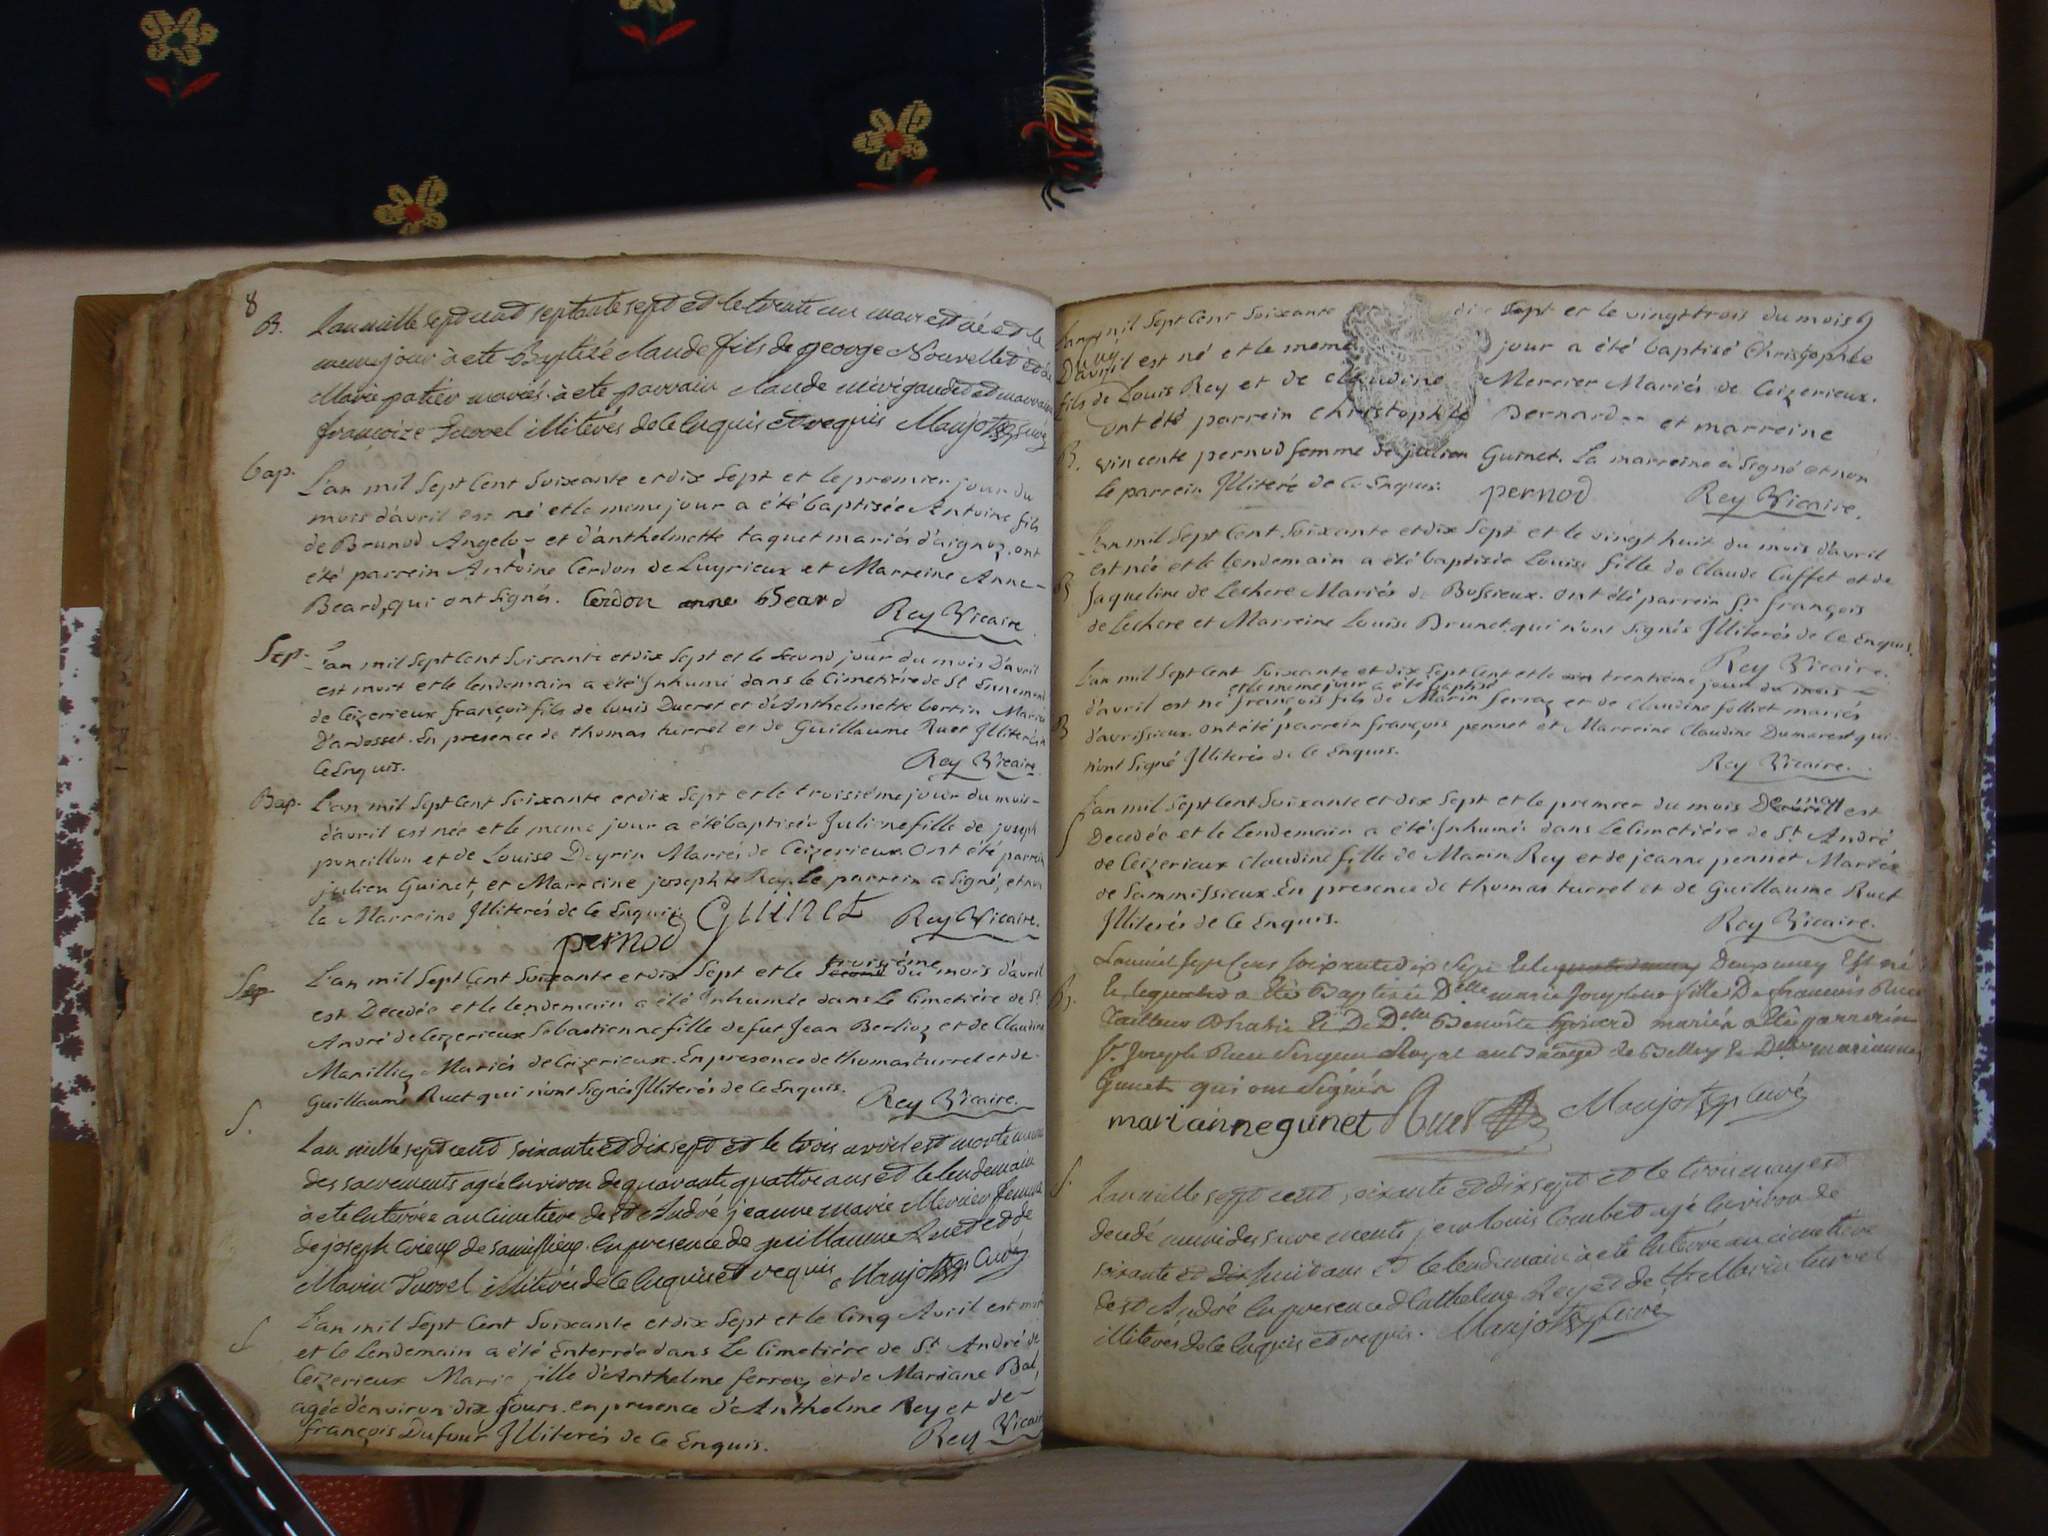 8
B. L'an mille sept cent septante sept et le trente un mars est né et le
meme jour à ete Baptisé claude fils de george Nouvellet et de
Marie patier mariés à ete parrain claude mérigaudet et marraine
françoize Turrel illiterés de ce enquis et requis Maujot curé
bap. L'an mil sept Cent soixante et dix sept et le premier jour du
mois d'avril est né et le meme jour a été baptisée Antoine fils
de Brunod Angeloz et d'anthelmette taquet mariés d'aignoz. ont
été parrein Antoine Cerdon de Luyrieux et Marreine Anne
Beard, qui ont signés. Cerdon anne bEeard Rey Vicaire
Sep. L'an mil sept Cent soixante et dix sept et le second jour du mois d'avril
est mort et le lendemain a été Inhumé dans le Cimetière de St Ennemond
de Ceizerieux françois fils de louis Ducret et d'Anthelmette bertin Mariés
D'ardosset. En presence de thomas turrel et de Guillaume Ruet Illiterés de
Ce Enquis. Rey Vicaire.
Bap. L'an mil sept Cent soixante et dix sept et le troisiéme jour du mois
d'avril est née et le meme jour a été baptisée Julienne fille de joseph
poncillon et de Louise Deyrin Mariés de Ceizerieux. Ont été parrein
julien Guinet, et Marreine josephte Rey. le parrein a signé, et non
la Marreine Illiterés de Ce Enquis Guinet Rey Vicaire.
pernod
Sep. L'an mil sept Cent soixante et dix sept et le second troisiéme du mois d'avril
est Decedée et le lendemain a été Inhumée dans Le Cimetière de St
André de Ceizerieux Sebastienne fille de fut Jean Berlioz et de Claudine
Marilliez Mariés de Ceizerieux. En presence de thomas turrel et de
Guillaume Ruet qui n'ont signés Illiterés de Ce Enquis. Rey Vicaire.
S. L'an mille sept cent soixante et dix sept et le trois avril est morte munie
des sacrements agée environ de quarante quattre ans et le lendemain
à ete enterrée au cimetiere de st André jeanne marie Mercier femme
de joseph crieux de samissieux. en presence de guillaume Ruet et de
Marin Turrel illiterés de ce enquis et requis Maujot curé
S. L'an mil sept Cent soixante et dix sept et le Cinq Avril est mort
et le Lendemain a été Enterrée dans Le Cimetière de St André de
Ceizerieux Marie fille d'Anthelme ferroz et de Mariane Bal,
agée d'environ dix jours. en presence d'Anthelme Rey et de
françois Dufour Illiterés de Ce Enquis. Rey Vicaire
L'an mil sept Cent soixante dix sept et le vingt trois du mois
D'avril est né et le meme jour a été baptisé Christophle
fils de Louis Rey et de claudine Mercier Mariés de Ceizerieux.
ont été parrein christophle Bernard et marreine
B. vincente pernod femme de julien Guinet. La marreine a signé et non
le parrein Illiteré de Ce Enquis. pernod Rey Vicaire.
L'an mil sept Cent soixante et dix sept et le vingt huit du mois d'avril
est née et le lendemain a été baptisée Louise fille de Claude Cuffet et de
B Jaqueline de Lechere Mariés de Bossieux. ont été parrein Sr françois
de Lechere et Marreine Louise Brunet. qui n'ont signés Illiterés de Ce Enquis.
Rey Vicaire.
L'an mil sept Cent soixante et dix sept Cent et le trentiéme jour du mois
et le meme jour a été baptisé
d'avril est né françois fils de Marin ferraz et de claudine folliet mariés
B d'avrissieux. ont été parrein françois pennet et Marreine Claudine Dumarest qui
n'ont signé Illiterés de Ce Enquis. Rey Vicaire.
S L'an mil sept Cent soixante et dix sept et le premier du mois De may est
Decedée et le Lendemain a été Inhumée dans le Cimetière de St André
de Ceizerieux claudine fille de Marin Rey et de jeanne pennet Mariés
de sammissieux. En presence de thomas turrel et de Guillaume Ruet
Illiterés de Ce Enquis. Rey Vicaire.
L'an mil sept Cens soixante dix sept Deux may Est né
B. Et le a Eté Baptisée Delle marie Josephte fille De francois Ruet
Tailleur D'habis Et De Delle Benoite mariés a Eté parrein
Sr Joseph Ruet Sergeant Royal au Baillage de Belley Et Delle marianne
Gunet qui ont Signés
marianne gunet Ruet Maujot curé
S. L'an mille sept cent soixante et dix sept et le trois may est
decedé muni des sacrements jean louis Coubet agé environ de
soixante et dix huit ans et le lendemain à ete enterré au cimetiere
de st André en presence d'Anthelme Rey et de Marin turrel
illiterés de ce enquis et requis. Maujot curé